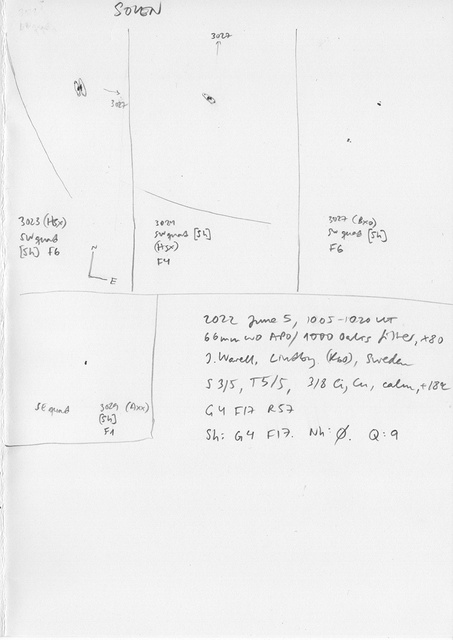 SOLEN
3027
3027
3023 (Hsx)
SW quad
[Sh] F6
N
E
3024
SW quad [Sh]
(Hsx)
F4
3027 (Bxo)
SW quad [Sh]
F6
SE quad
3029 (Axx)
[Sh]
F1
2022 June 5, 1005-1020 UT
66mm WO APO/ 1000 Oaks filter, x80
J. Warell, Lindby (R60), Sweden
S 3/5, T5/5, 3/8 Ci, Cu, calm, +18c
G4 F17 R57
Sh: G4 F17. Nh: Ø. Q: 9